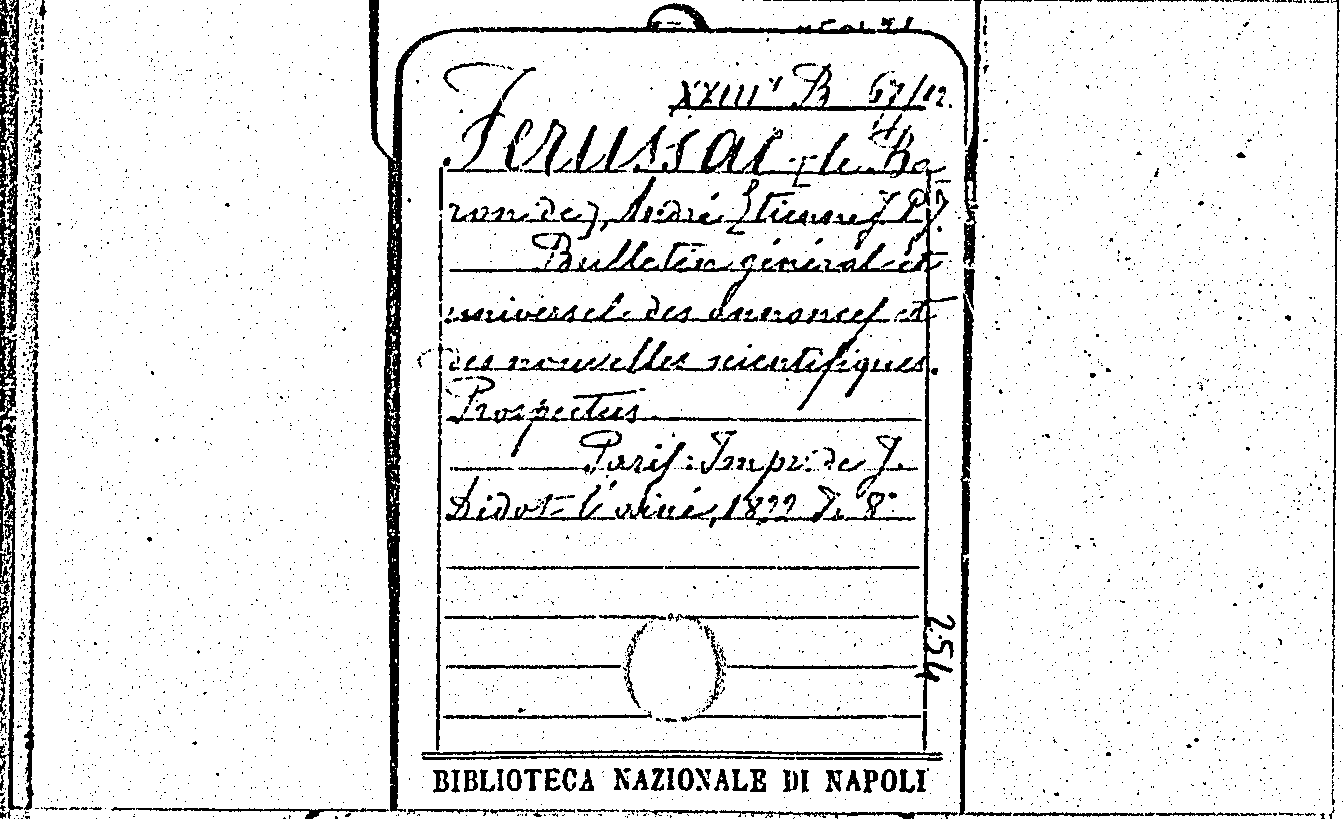 XXIIIª B 67/12
Ferussac (le Ba
ron de), André Etienne J. P. J.
Bulletin général et
universel des annonces et
des nouvelles scientifiques.
Prospectus
Paris: Impr: de J.
Didot l'aîné, 1822 In 8º
254
BIBLIOTECA NAZIONALE DI NAPOLI